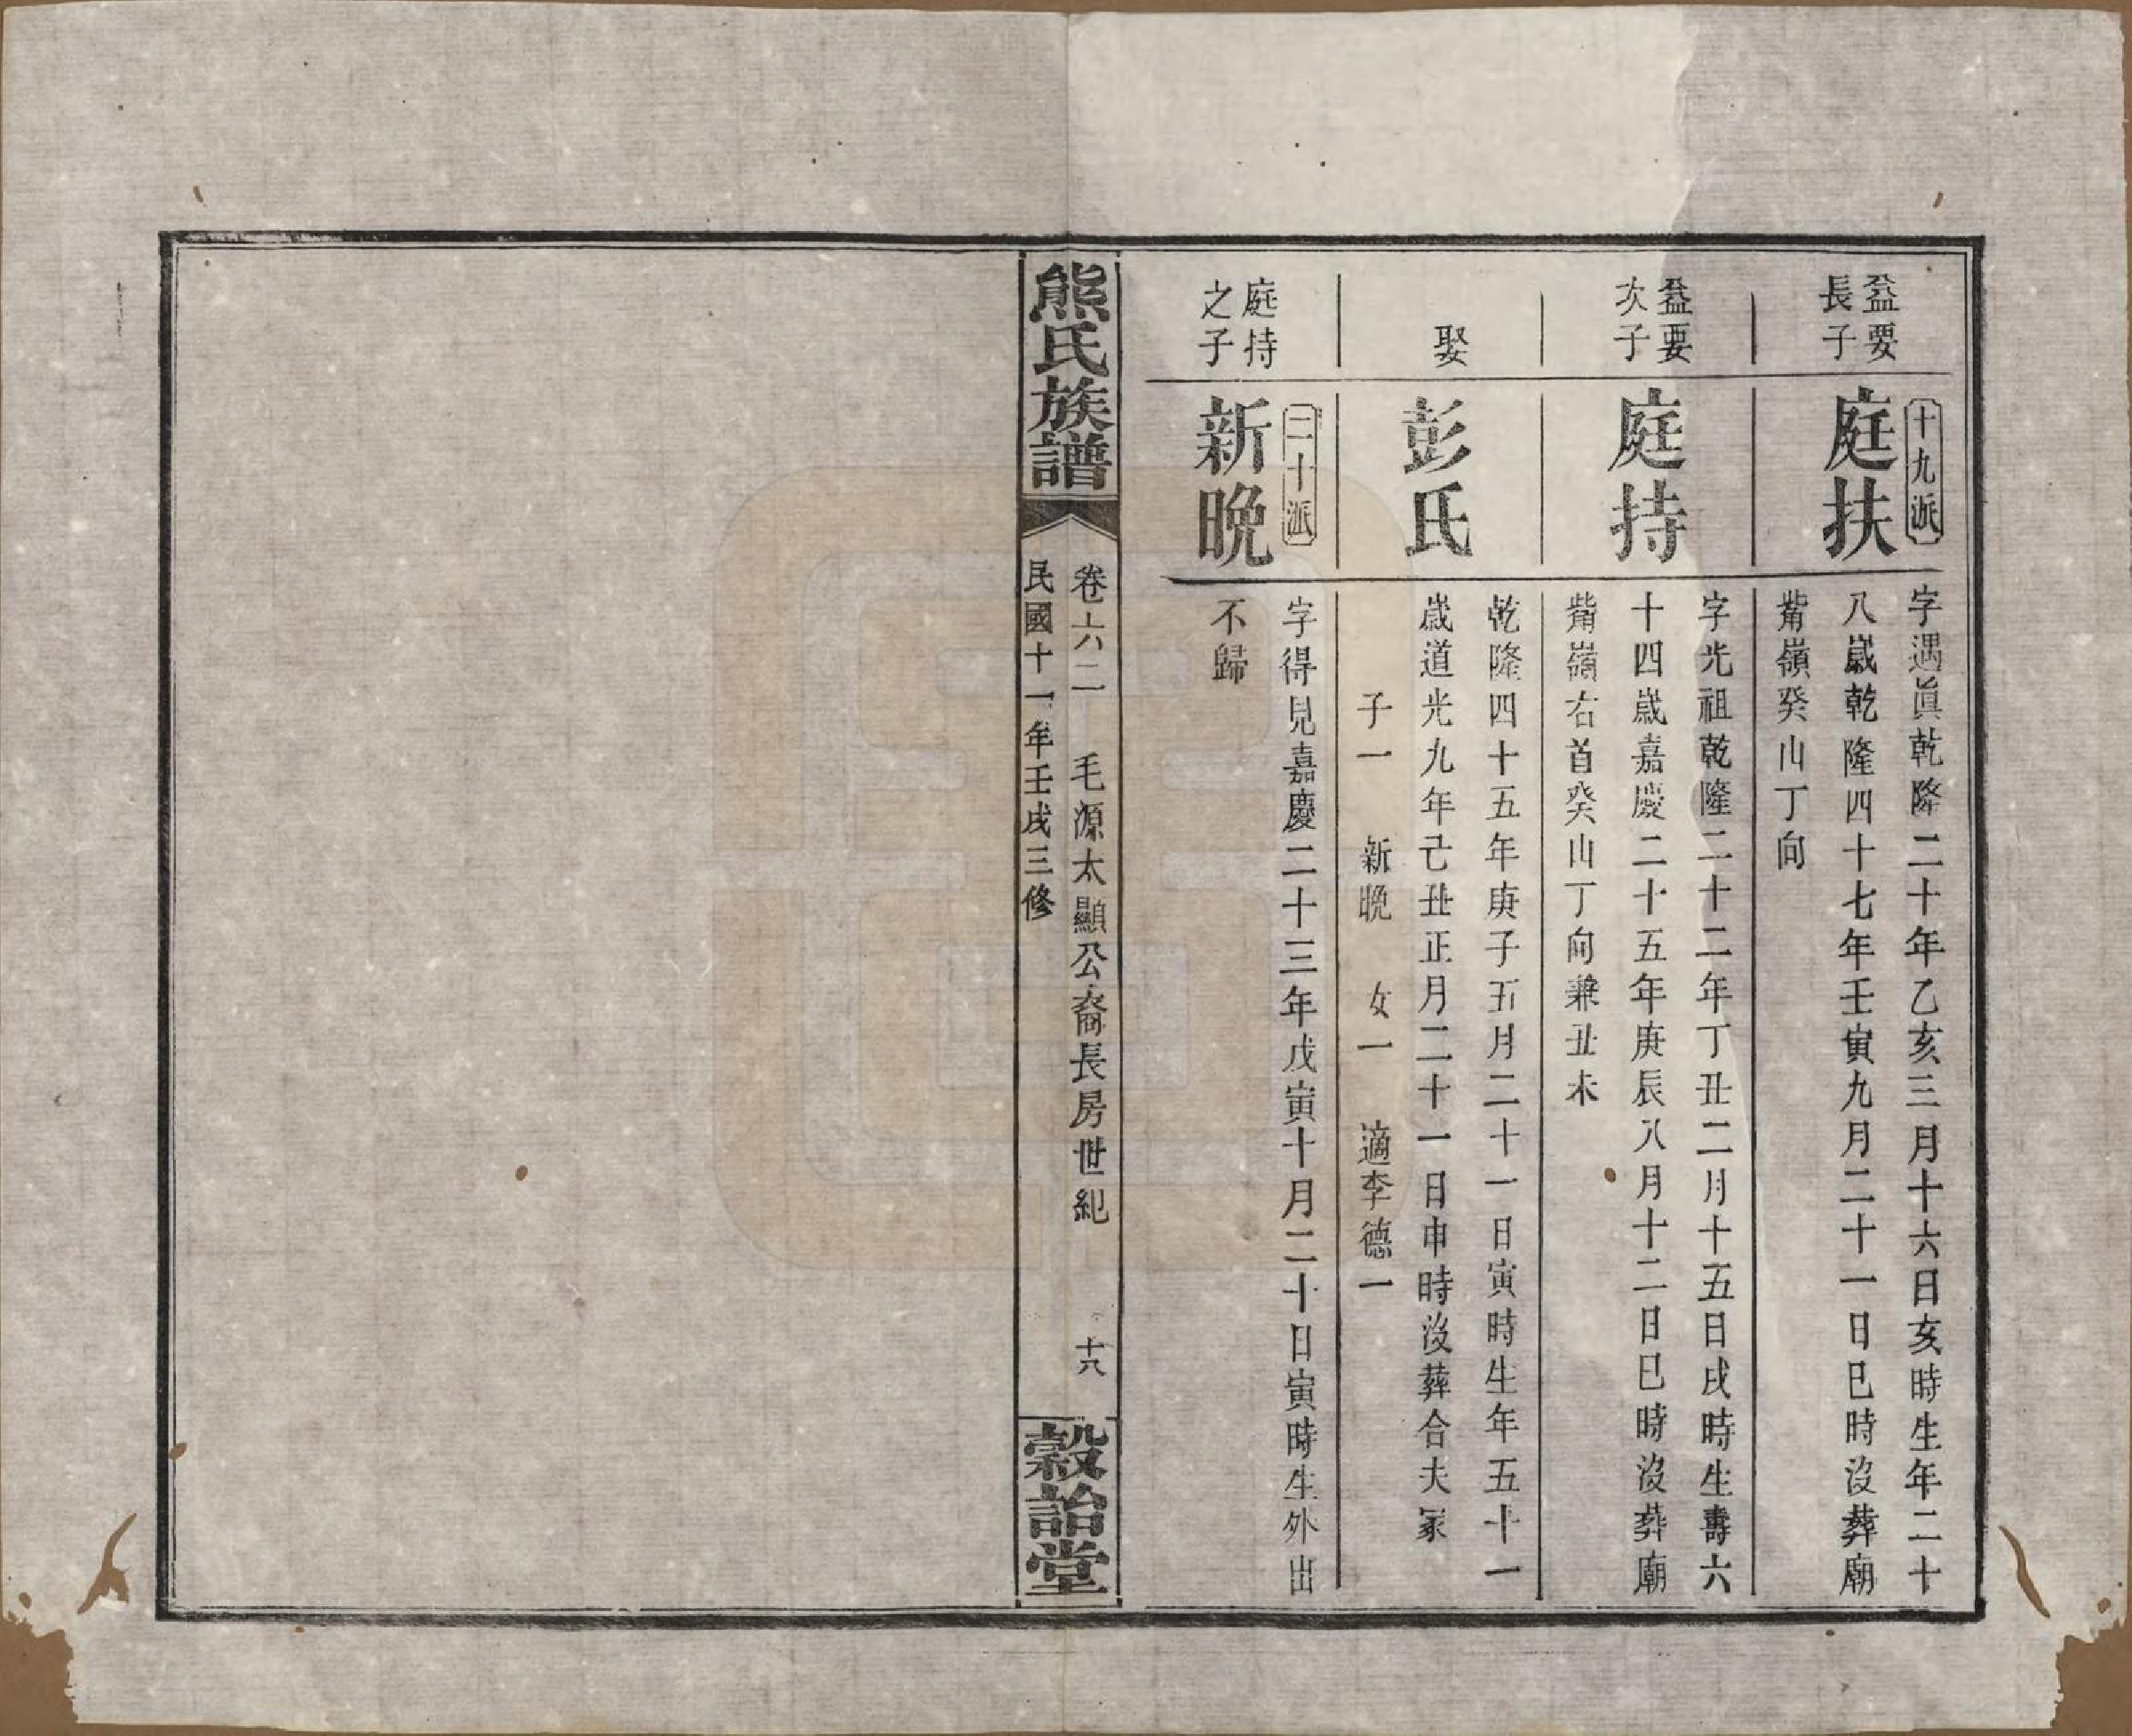 益要
長子
十九派
庭扶
字遇眞乾隆二十年乙亥三月十六日亥時生年二十
八歲乾隆四十七年壬寅九月二十一日巳時沒葬廟
觜嶺癸山丁向
益要
次子
庭持
字光祖乾隆二十二年丁丑二月十五日戌時生壽六
十四歲嘉慶二十五年庚辰八月十二日巳時沒葬廟
觜嶺右首癸山丁向兼丑未
娶
彭氏
乾隆四十五年庚子五月二十一日寅時生年五十一
歲道光九年己丑正月二十一日申時沒葬合夫冢
子一 新晚 女一 適李德一
庭持
之子
二十派
新晚
字得見嘉慶二十三年戊寅十月二十日寅時生外出
不歸
熊氏族譜
卷六二 毛源太顯公裔長房世紀 十六
民國十一年壬戌三修
穀詒堂